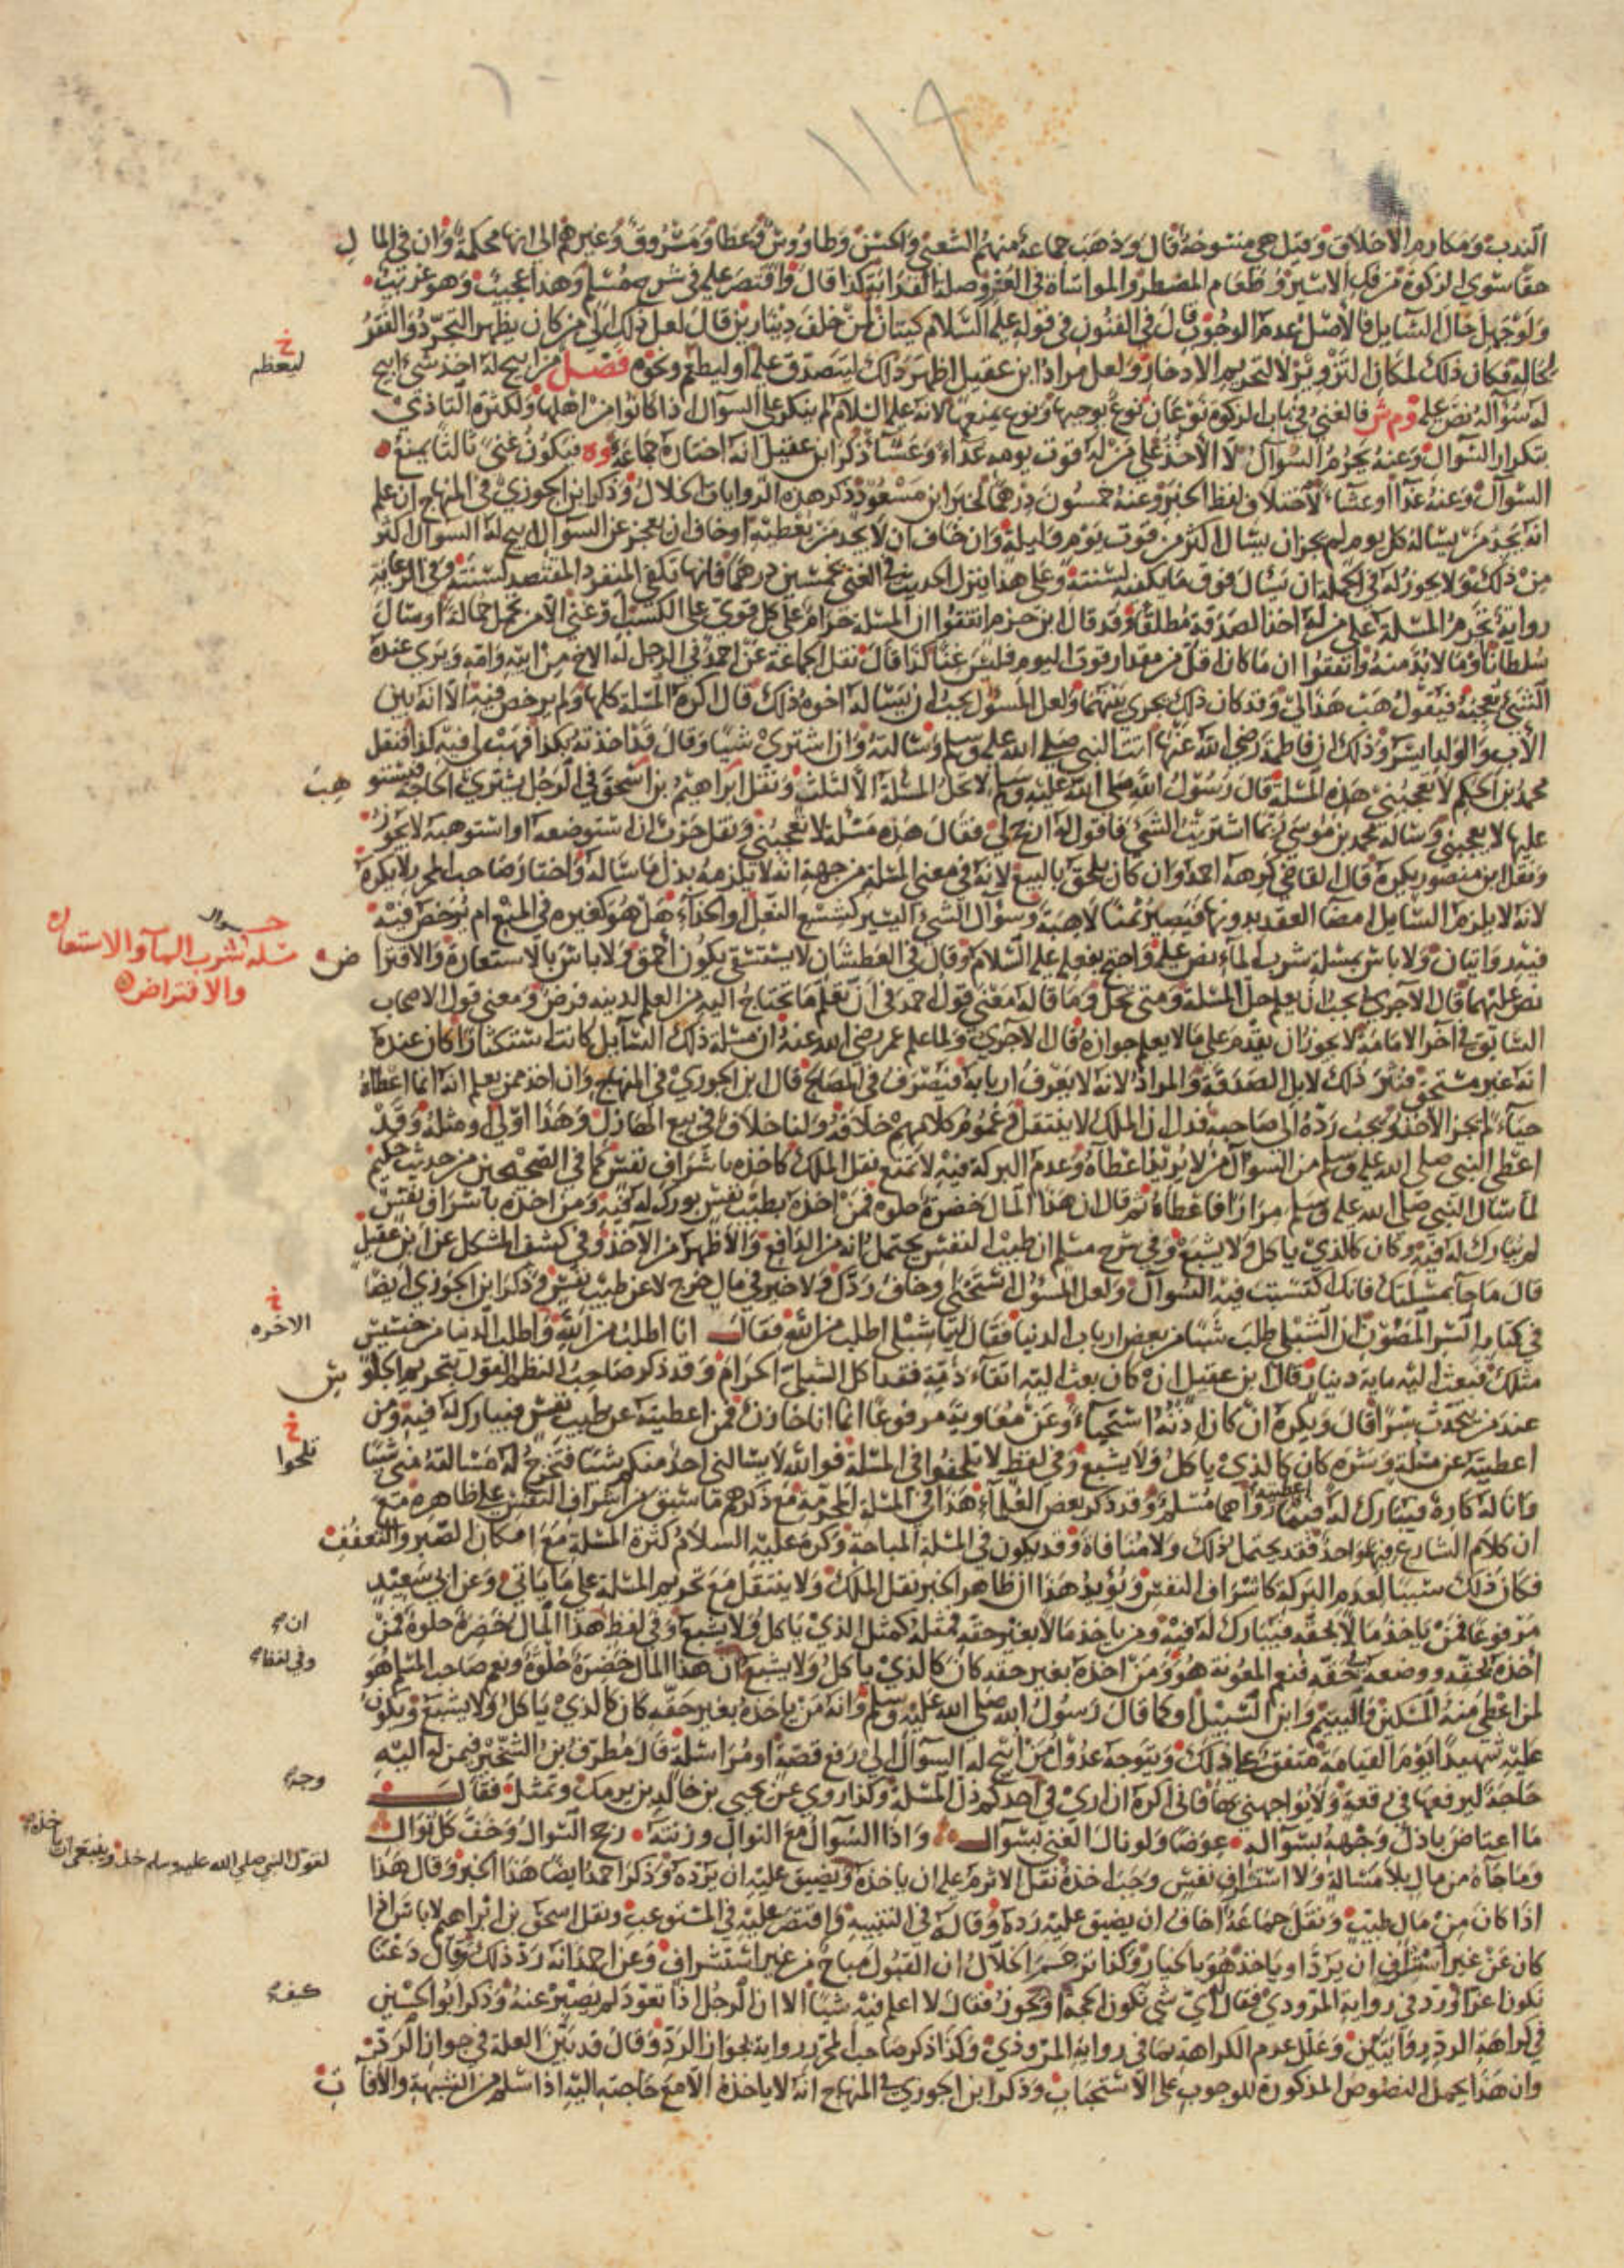 ١١٩
الندب ومكارم الاخلاق وقيل هي منسوخة قال وذهب جماعة منهم الشعبي والحسن وطاووس وعطا ومسروق وغيرهم الى انها محكمة وان في المال
حقا سوى الزكوة من فك الاسير وطعام المضطر والمواساة في العسر وصلة القرابة كذا قال واقتصر عليه في شرح مسلم وهذا عجيب وهو غريب
ولو جهل حال السايل فالاصل عدم الوجوب قال في الفنون في قوله عليه السلام كيتان لمن خلف دينارين قال لعل ذلك من كان يظهر التجرد والفقر
لحاله فكان ذلك لمكان التزوير لا لتحريم الادخار ولعل مراد ابن عقيل اظهر ذلك ليتصدق عليه او ليطعم ونحوه فصل من ابيح له اخذ شئ ابيح
خ ليعظم
له سؤاله نص عليه وم ش فالغني في باب الزكوة نوعان نوع يوجبها ونوع يمنعها لانه عليه السلام لم ينكر على السوال اذا كانوا من اهلها ولكثرة التاذي
بتكرار السوال وعنه يحرم السوال لا الاخذ على من له قوت يومه غداء وعشا ذكر ابن عقيل انه اختاره جماعة وه فيكون غنى ثالثا يمنع
السوال وعنه غدا او عشاء لاختلاف لفظ الخبر وعنه خمسون درهما لخبر ابن مسعود ذكر هذه الروايات الخلال وذكر ابن الجوزي في المنهاج ان علم
انه يجد من يساله كل يوم لم يجز ان يسال اكثر من قوت يوم وليلة وان خاف ان لا يجد من يعطيه او خاف ان يعجز عن السوال ابيح له السوال اكثر
من ذلك ولا يجوز له في الجملة ان يسال فوق ما يكفيه لسنته وعلى هذا ينزل الحديث في الغنى بخمسين درهما فانها تكفي المنفرد المقتصد لسنته وفي الرعاية
رواية تحرم المسلة على من له اخذ الصدقة مطلقا وقد قال ابن حزم اتفقوا ان المسلة حرام على كل قوي على الكسب او غني الا من تحمل حمالة او سال
سلطانا وما لا بد منه واتفقوا ان ما كان اقل من مقدار قوت اليوم فليس غنا كذا قال نقل الجماعة عن احمد في الرجل له الاخ من ابيه وامه ويرى عنده
الشئ يعجبه فيقول هب هذا لي وقد كان ذلك يجري بينهما ولعل المسؤل يحب ان يساله اخوه ذلك قال اكره المسلة كلها ولم يرخص فيه الا انه بين
الاب والولد ايسر وذلك ان فاطمة رضي الله عنها اتت النبي صلى الله عليه وسلم وسالته وان اشترى شيا وقال قد اخذته بكذا فهب لي فيه كذا فنقل
محمد بن الحكم لا تعجبني هذه المسلة قال رسول الله صلى الله عليه وسلم لا تحل المسلة الا لثلث ونقل ابراهيم بن اسحق في الرجل يشتري الحاجة فيستوهب
عليها لا يعجبني وساله محمد بن موسى ربما اشتريت الشئ فاقول له ارجح لي فقال هذه مسلة لا تعجبني ونقل حرب ان استوضعه او استوهبه لا يجوز
ونقل ابن منصور يكره قال القاضي كرهه احمد وان كان يلحق بالبيع لانه في معنى المسلة من جهة انه لا يلزمه بذل ما ساله واختار صاحب المحرر لا يكره
لانه لا يلزم السايل امضا العقد بدونها فيصير ثمنا لا هبة وسؤال الشئ اليسير كشسع النعل او الحذاء هل هو كغيره في المنع ام يرخص فيه
فيه روايتان ولا باس بمسلة شرب الماء نص عليه واحتج بفعله عليه السلام وقال في العطشان لا يستسقي يكون احمق ولا باس بالاستعارة والاقتراض
مسلة شرب الما والاستعارة
والاقتراض
نص عليهما قال الاجري يجب ان يعلم حل المسلة ومتى تحل وما قاله معنى قول احمد في ان تعلم ما يحتاج اليه من العلم لدينه فرض ومعنى قول الاصحاب
السابق في اخر الامامة لا يجوز ان يقدم على ما لا يعلم جوازه قال الاجري ولما علم عمر رضي الله عنه ان مسلة ذلك السايل كانت استكثارا كان عنده
انه غير مستحق فنثر ذلك لابل الصدقة والمراد لانه لا يعرف اربابه فيصرف في المصالح قال ابن الجوزي في المنهاج وان اخذ ممن يعلم انه انما اعطاه
حياء لم يجز الاخذ ويجب رده الى صاحبه فدل ان الملك لا ينتقل وعموم كلامهم خلافه ولنا خلاف في بيع الهازل وهذا اولى او مثله وقد
اعطى النبي صلى الله عليه وسلم من السوال من لا يريد اعطاه وعدم البركة فيه لا تمنع نقل الملك كاخذه باشراف نفس كما في الصحيحين من حديث حكيم
لما سال النبي صلى الله عليه وسلم مرارا فاعطاه ثم قال ان هذا المال خضرة حلوة فمن اخذه بطيب نفس بورك له فيه ومن اخذه باشراف نفس
لم يبارك له فيه وكان كالذي ياكل ولا يشبع وفي شرح مسلم ان طيب النفس يحتمل انه من الدافع والاظهر من الاخذ وفي كشف المشكل عن ابن عقيل
قال ما جا بمسلتك فانك اكتسبت فيه السوال ولعل المسؤل استحيا او خاف ردك ولا خير في مال خرج لا عن طيب نفس وذكر ابن الجوزي ايضا
في كتابه السر المصون ان الشبلي طلب شيا من بعض ارباب الدنيا فقال له يا شبلي اطلب من الله فقال انا اطلب من الله واطلب الدنيا من خسيس
خ الاخره
مثلك فبعث اليه ماية دينار قال ابن عقيل ان كان بعث اليه اتقاء ذمه فقد اكل الشبلي الحرام وقد ذكر صاحب النظم القول بتحريم الجلوس
عند من يتحدث سرا قال ويكره ان كان اذنه استحياء وعن معاوية مرفوعا انما انا خازن فمن اعطيته عن طيب نفس فيبارك له فيه ومن
اعطيته عن مسلة وشره كان كالذي ياكل ولا يشبع وفي لفظ لا تلحفوا في المسلة فوالله لا يسالني احد منكم شيا فتخرج له مسالته مني شيا
خ تلحوا
وانا له كاره فيبارك له فيما اعطيته رواهما مسلم وقد ذكر بعض العلماء هذا في المسلة المحرمة مع ذكرهم ما سبق من اشراف النفس على ظاهره مع
ان كلام الشارع فيهما واحد فقد يحتمل ذلك ولا منافاة وقد يكون في المسلة المباحة وكره عليه السلام كثرة المسلة مع امكان الصبر والتعفف
فكان ذلك سببا لعدم البركة كاشراف النفس ويؤيد هذا ان ظاهر الخبر نقل الملك ولا ينتقل مع تحريم المسلة على ما ياتي وعن ابي سعيد
مرفوعا فمن ياخذ مالا بحقه فيبارك له فيه ومن ياخذ مالا بغير حقه فمثله كمثل الذي ياكل ولا يشبع وفي لفظ هذا المال خضرة حلوة فمن
ان
اخذه بحقه ووضعه في حقه فنعم المعونة هو ومن اخذه بغير حقه كان كالذي ياكل ولا يشبع ان هذا المال خضرة حلوة ونعم صاحب المسلم هو
وفي لفظ
لمن اعطى منه المسكين واليتيم وابن السبيل او كما قال رسول الله صلى الله عليه وسلم وانه من ياخذه بغير حقه كان كالذي ياكل ولا يشبع ويكون
عليه شهيدا يوم القيامة متفق على ذلك ويتوجه عدول من ابيح له السوال الى رفع قصة او مراسلة قال مطرف بن الشخير فيمن له اليه
حاجة ليرفعها في رقعة ولا يواجهني بها فاني اكره ان ارى في احدكم ذل المسلة وكذا روي عن يحيى بن خالد بن برمك وتمثل فقال
وجه
ما اعتاض باذل وجهه بسؤاله عوضا ولو نال الغنى بسوال واذا السوال مع النوال وزنته رجح السوال وخف كل نوال
وما جاه من مال بلا مسالة ولا اشراف نفس وجب اخذه نقل الاثرم عليه ان ياخذه ويضيق عليه ان يرده وذكر احمد ايضا هذا الخبر وقال هذا
لقول النبي صلى الله عليه وسلم خذه
اذا كان من مال طيب ونقل جماعة اخاف ان يضيق عليه رده وقاله في التنبيه واقتصر عليه في المستوعب ونقل اسحق بن ابراهيم لا باس اذا
كان عن غير استشراف ان يرد او ياخذ هو بالخيار وكذا ترجم الخلال ان القبول مباح من غير استشراف وعن احمد انه رد ذلك وقال دعنا
نكون اعزا ورد في رواية المروذي فقال اي شي تكون الحجة او يجوز فقال لا اعلم فيه شيا الا ان الرجل اذا تعود لم يصبر عنه وذكر ابو الحسين
كيف
في كراهة الرد روايتين وعلل عدم الكراهة بما في رواية المروذي وكذا ذكر صاحب المحرر رواية بجواز الرد وقال قد بين العلة في جواز الرد
وان هذا يحمل النصوص المذكورة للوجوب على الاستحباب وذكر ابن الجوزي في المنهاج انه لا ياخذه الا مع حاجته اليه اذا سلم من الشبهة والافات